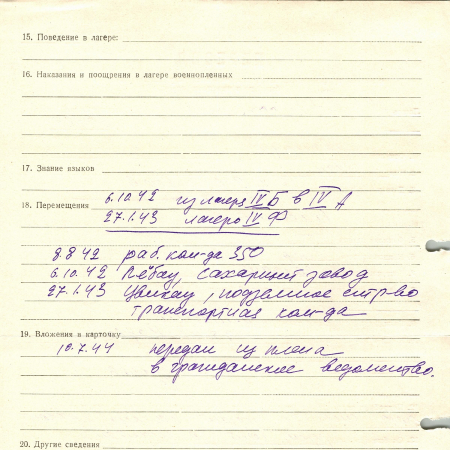 15. Поведение в лагере:
16. Наказания и поощрения в лагере военнопленных
17. Знание языков
18. Перемещения 6.10.42 из лагеря IV Б в IV А
27.1.43 лагерь IV Ф
8.8.42 раб. ком-да 350
6.10.42 Лёбау, сахарный завод
27.1.43 Цвикау, подземное стр-во
транспортная ком-да
19. Вложения в карточку
10.7.44 передан из плена
в гражданское ведомство.
20. Другие сведения